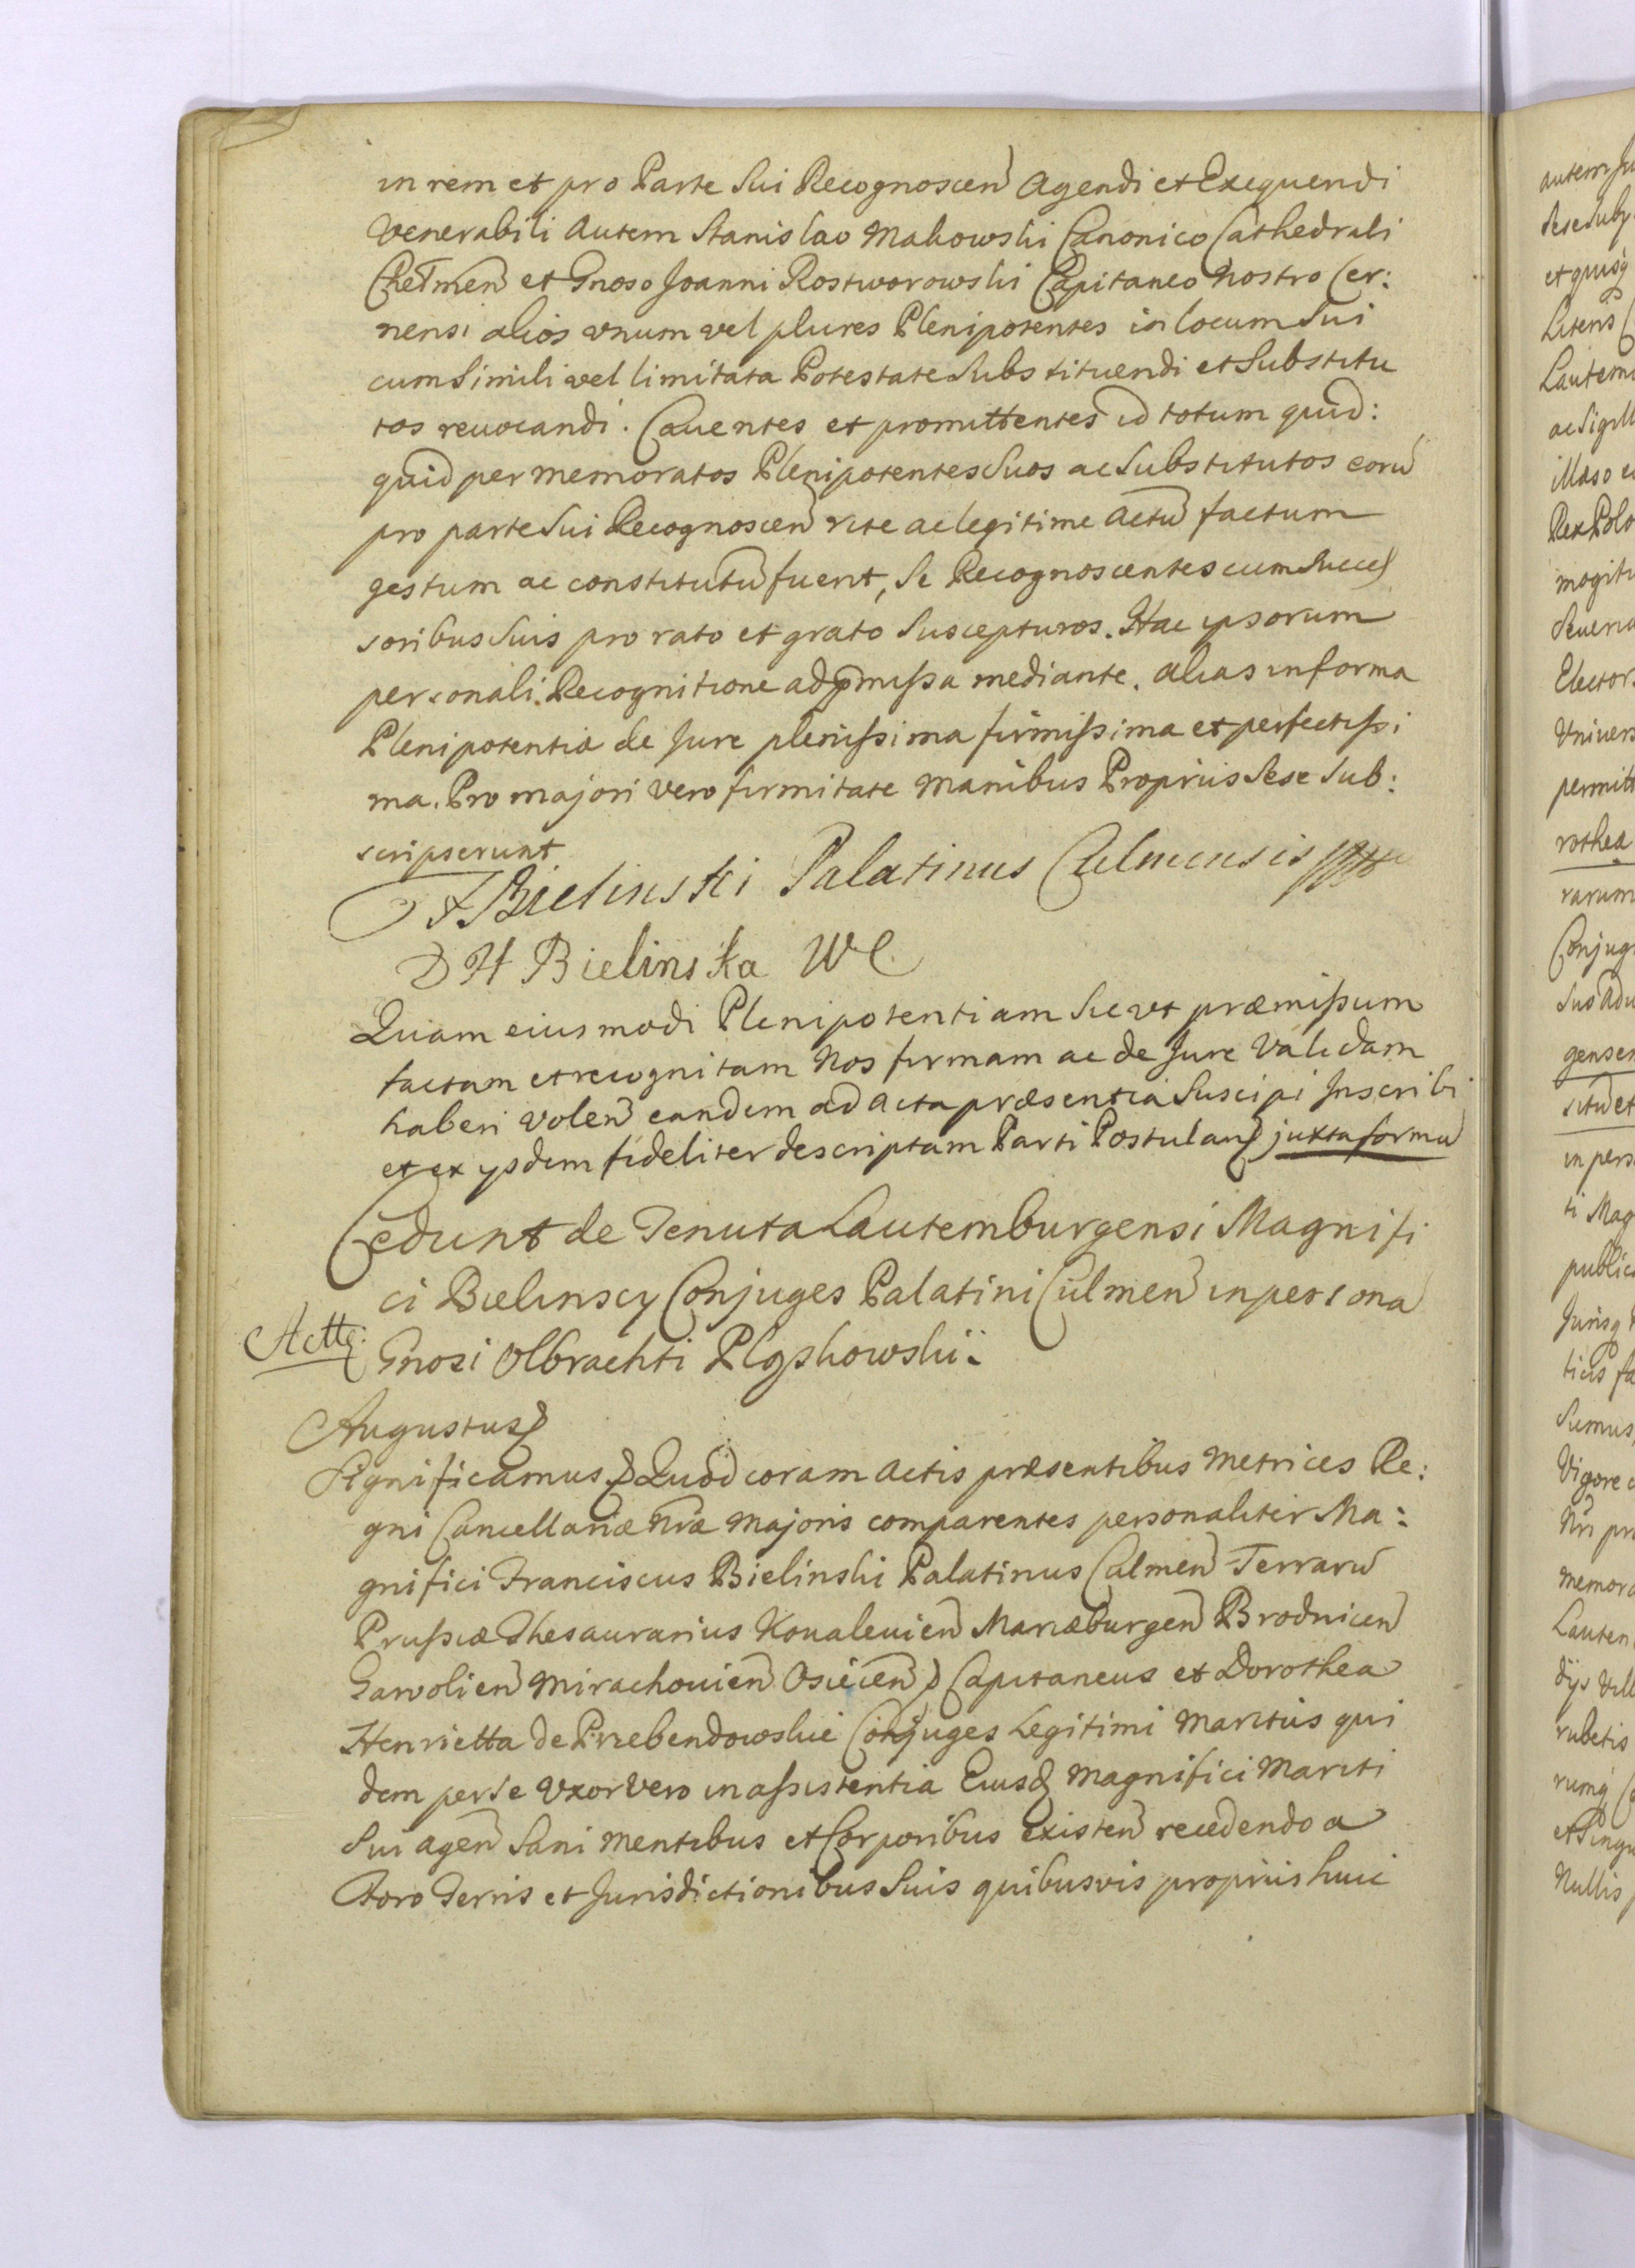 in rem et pro Parte Sui Recognoscen Agendi et Exequendi
Venerabili Autem Stanislao Makowski Canonico Cathedrali
Chełmen et Gnoso Joanni Rostworowski Capitaneo Nostro Cer:
nensi alios vnum vel plures Plenipotentes in locum Sui
cum Simili vel limitata Potestate Substituendi et Substitu
tos reuocandi. Cauentes et promittentes id totum quid:
quid per memoratos Plenipotentes Suos ac Substitutos eorũ
pro parte Sui Recognoscen rite ac legitime Actũ factum
gestum ac constitutũ fuerit, Se Recognoscentes cum Succes
soribus Suis pro rato et grato Suscepturos. Hac ipsorum
personali Recognitione ad pmissa mediante. alias in forma
Plenipotentiæ de Jure plenissima firmissima et perfectissi
ma. Pro majori vero firmitate Manibus Propriis Sese Sub:
scripserunt
F Bielinski Palatinus Culmensis
D H Bielinska WC
Quam eiusmodi Plenipotentiam Sic vt præmissum
factam et recognitam Nos firmam ac de Jure Validam
haberi Volen eandem ad Acta præsentia Suscipi Inscribi
et ex ijsdem fideliter descriptam Parti Postulan juxta formã
Cedunt de Tenuta Lautemburgensi Magnifi
ci Bielinscy Conjuges Palatini Culmen in persona
Gnosi Olbrachti Pląskowskii.
Augustus
Significamus Quod coram Actis præsentibus Metrices Re:
gni Cancellariæ Nræ Majoris comparentes personaliter Ma:
gnifici Franciscus Bielinski Palatinus Culmen Terrarũ
Prussiæ Thesaurarius Koualeuien Mariæburgen Brodnicen
Garvolien Mirachouien Osiecen Capitaneus et Dorothea
Henrietta de Przebendowskie Conjuges Legitimi Maritus qui
dem per Se Vxor Vero in assistentia Eiusd Magnifici Mariti
Sui agen Sani Mentibus et Corporibus existen recedendo a
Foro Terris et Jurisdictionibus Suis quibusvis propriis huic